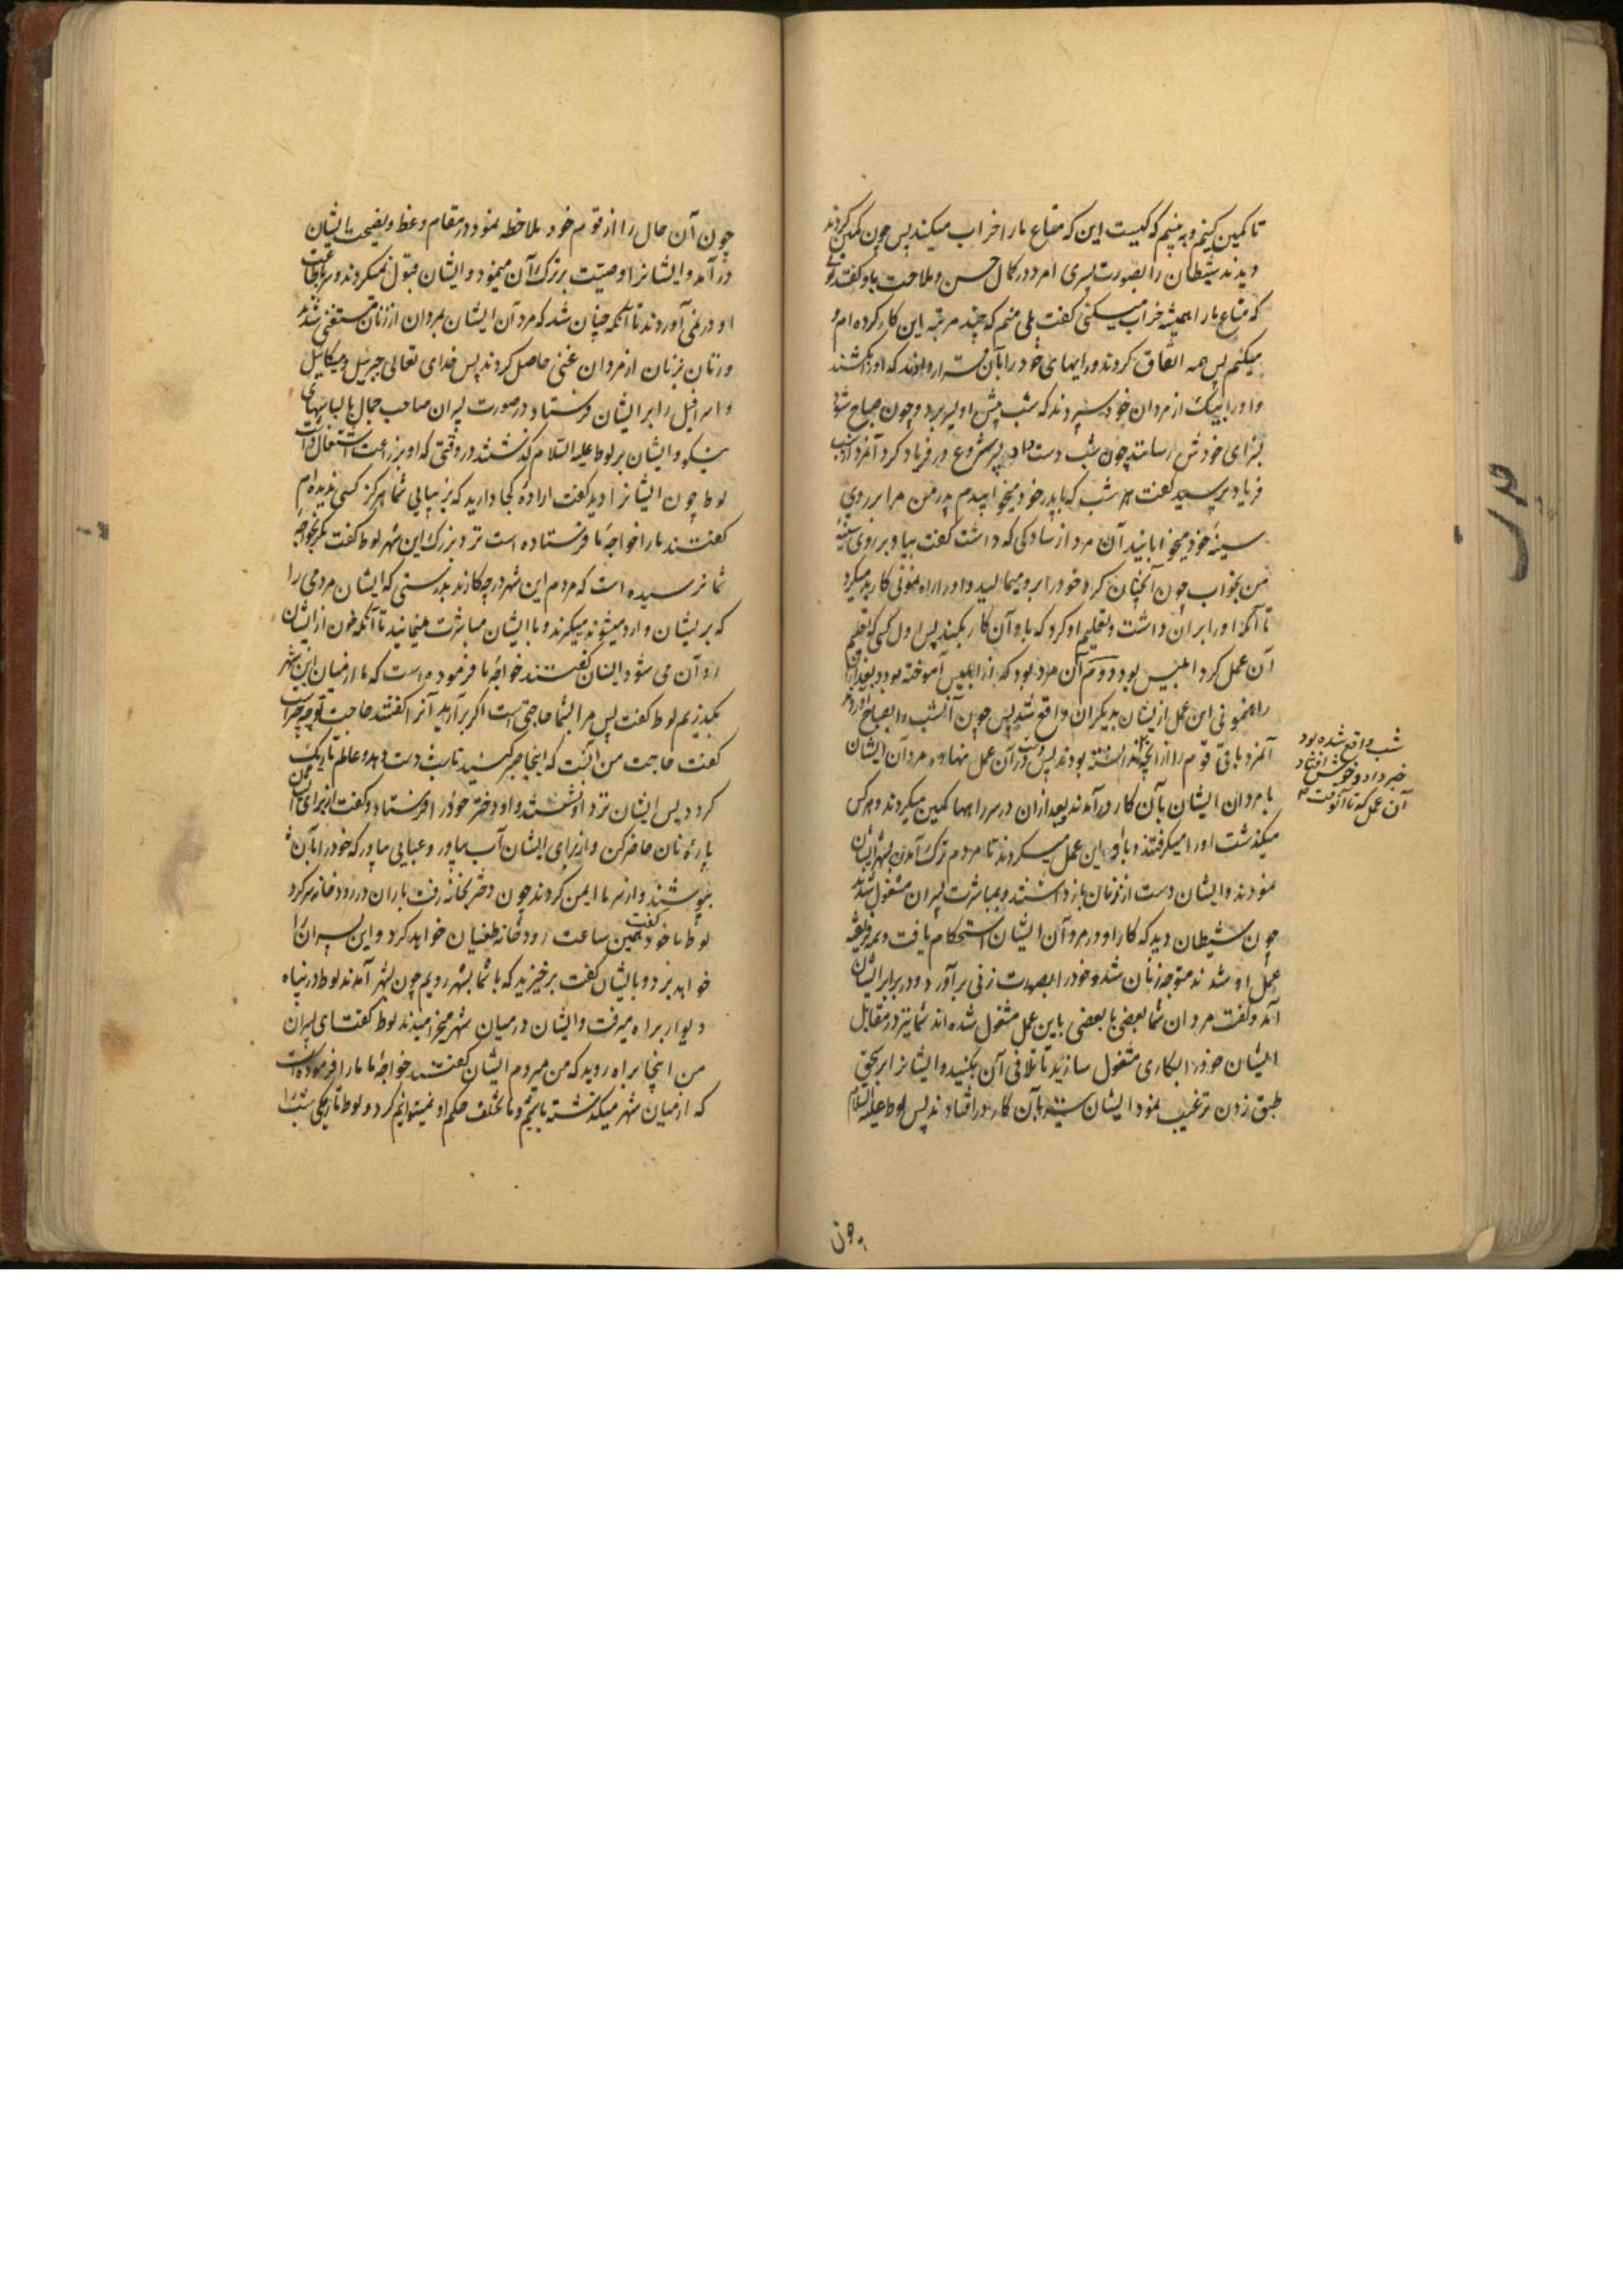 تا کمین کنیم و به بینیم که کیست این که متاع ما را خراب میکند پس چون کمین کردند
دیدند شیطان را بصورت پسری امرد در کمال حسن و ملاحت باو گفتند توئی
که متاع ما را همیشه خراب میکنی گفت بلی منم که چند مرتبه این کار کرده ام و
میکنم پس همه اتفاق کردند و رایهای خود را بآن قرار دادند که او را بکشند
و او را بیک از مردان خود سپردند که شب پیش او بسر برد و چون صباح شود
بسزای خودش رسانند چون شب دست داد پسر شروع در فریاد کرد آنمرد از سبب
فریاد پرسید گفت هر شب که با پدر خود میخوابیدم پدر من مرا بر روی
سینهٔ خود میخوابانید آن مرد از سادگی که داشت گفت بیا و بر روی سینهٔ
من بخواب چون آنچنان کرد خود را برو میمالید و او را راه نمونی کار بد میکرد
تا آنکه او را بر آن داشت و تعلیم او کرد که با او آن کار بکند پس اول کسی که تعلیم
آن عمل کرد ابلیس بود و دوم آن مرد بود که از ابلیس آموخته بود و بعد از آن
راهنمونی این عمل ازیشان بدیگران واقع شد پس چون آنشب را بصباح آوردند
آنمرد باقی قوم را از آنچه در آن
شب واقع شده بود
خبر داد و خوش افتاد
آن عمل که تا آنوقت
ندانسته بودند پس دست در آن عمل نهادند و مردان ایشان
با مردان ایشان بآن کار درآمدند بعد از آن در سر راهها کمین میکردند و هر کس
میگذشت او را میگرفتند و باو این عمل میکردند تا مردم ترک آمدن بشهر ایشان
نمودند و ایشان دست از زنان باز داشتند و بمباشرت پسران مشغول شدند
چون شیطان دید که کار او در مردان ایشان استحکام یافت و همه فریفته
عمل او شدند متوجه زنان شد و خود را بصورت زنی برآورد و در برابر ایشان
آمد و گفت مردان شما بعضی با بعضی باین عمل مشغول شده اند شما نیز در مقابل
ایشان خود را بکاری مشغول سازید تا تلافی آن بکنید و ایشانرا بر بحق
طبق زدن ترغیب نمود ایشان نیز بآن کار در افتادند پس لوط علیه السلام
چون آن حال را از قوم خود ملاحظه نمود در مقام وعظ و نصیحت ایشان
در آمد و ایشانرا وصیت بر ترک آن مینمود و ایشان قبول نمیکردند و سر باطاعت
او در نمی آوردند تا آنکه چنان شد که مردان ایشان بمردان از زنان مستغنی شدند
و زنان بزنان از مردان غنی حاصل کردند پس خدای تعالی جبرئیل و میکائیل
و اسرافیل را بر ایشان فرستاد در صورت پسران صاحب جمال با لباسهای
نیکو و ایشان بر لوط علیه السلام گذشتند در وقتی که او بزراعت اشتغال داشت
لوط چون ایشانرا دید گفت اراده کجا دارید که بزیبایی شما هرگز کسی ندیده ام
گفتند ما را خواجهٔ ما فرستاده است نزد بزرگ این شهر لوط گفت مگر بخواجهٔ
شما نرسیده است که مردم این شهر در چه کارند بدرستی که ایشان مردمی را
که بر ایشان وارد میشوند میگیرند و با ایشان مباشرت مینمایند تا آنکه خون از ایشان
روان می شود ایشان گفتند خواجهٔ ما فرموده است که ما از میان این شهر
بگذریم لوط گفت پس مرا بشما حاجتی است اگر برآرید آنرا گفتند حاجت تو چه چیز است
گفت حاجت من آنست که اینجا صبر کنید تا شب دست دهد و عالم تاریک
گردد پس ایشان نزد او نشستند و او دختر خود را فرستاد و گفت از برای مهمان
پارهٔ نان حاضر کن و از برای ایشان آب بیاور و عبایی بیاور که خود را بآن
بپوشند و از سرما ایمن گردند چون دختر بخانه رفت باران در رودخانه سر کرد
لوط با خود گفت همین ساعت رودخانه طغیان خواهد کرد و این پسران را
خواهد برد و بایشان گفت برخیزید که با شما بشهر رویم چون بشهر آمدند لوط در پناه
دیوار براه میرفت و ایشان در میان شهر میخرامیدند لوط گفت ای پسران
من اینجا براه روید که من میروم ایشان گفتند خواجهٔ ما ما را فرموده است
که از میان شهر میگذشته باشیم و ما تخلف حکم او نمیتوانیم کرد و لوط تاریکی شب را